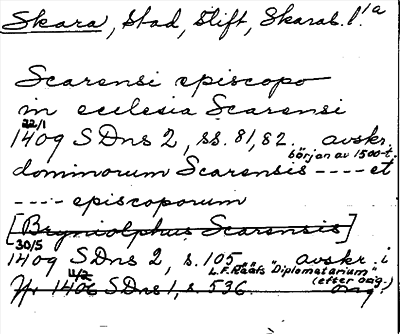 Skara, Stad, Stift, Skarab. l. 1a
Scarensi episcopo
in ecclesia Scarensi
22/1
1409 SDns 2, ss. 81,82. avskr.
början av 1500-t.
dominorum Scarensis ---- et
---- episcoporum
[Bryniolphus Scarensis]
30/5
1409 SDns 2, s. 105 avskr. i
L.F. Rääfs "Diplomatarium"
(efter orig.)
11/2
1406 SDns 1, s. 536. orig.